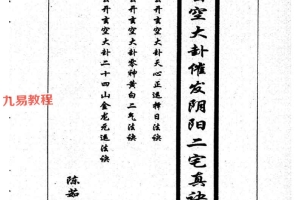 玄空大卦催发阴阳二宅真诀
公开玄空大卦天心正运择日法诀
公开玄空大卦零神黄白二气法诀
公开玄空大卦二十四山金龙元运法诀
陈茹
九易教程